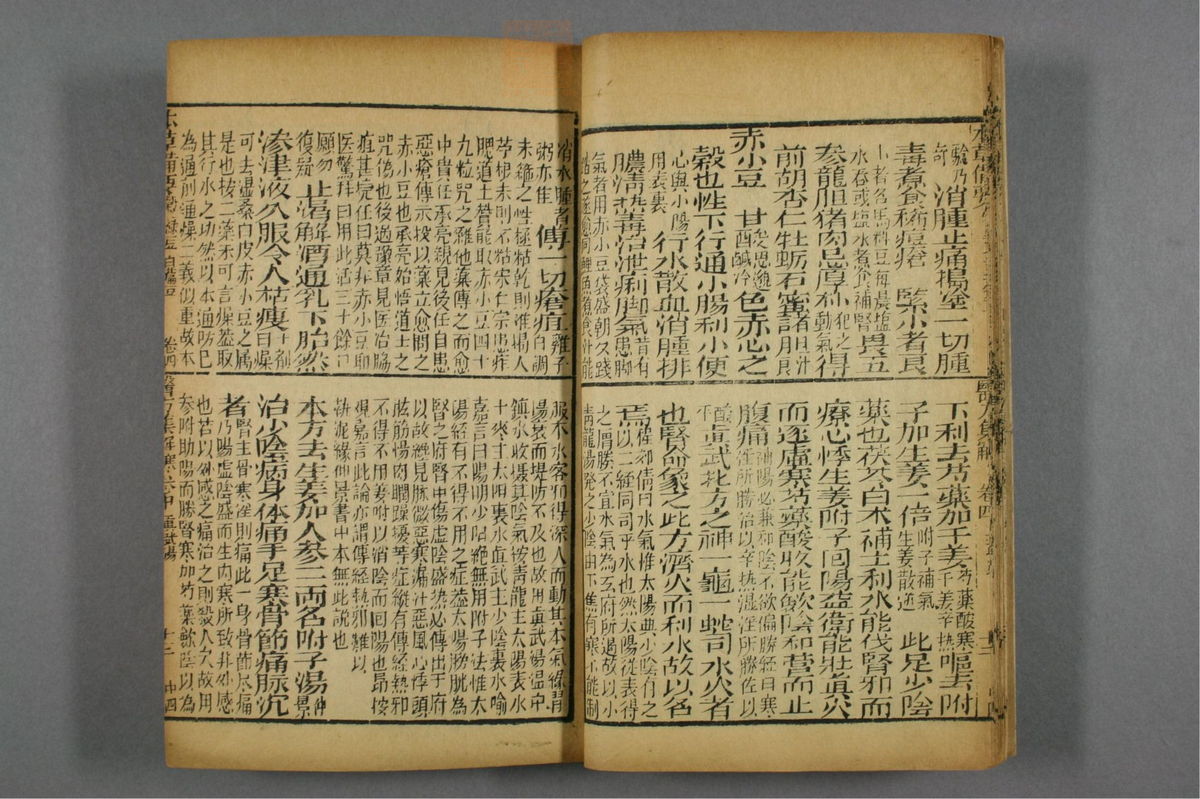 奇 消腫止痛搗塗一切腫
毒煮食稀痘瘡 緊小者良
小者名馬料豆每晨鹽水吞或鹽水煮食補腎 畏五
參龍胆猪肉忌厚朴犯之動氣得
前胡杏仁牡蛎石蜜諸胆汁良
赤小豆 甘酸思邈醎冷 色赤心之
穀也性下行通小腸利小便
心與小腸相表裏 行水散血消腫排
膿清熱毒治泄痢脚氣昔有患脚
氣者用赤小豆袋盛朝夕踐
踏之遂愈同鯉魚煮食汁能
消水腫煮粥亦佳 傅一切瘡疽雞子白調
末箍之性極粘乾則准揭人
苧根末則不粘宋仁宗患痄
腮道士贊能取赤小豆四十
九粒咒之雜他藥傅之而愈
中貴任承亮親見後任自患
惡瘡傅永投以藥立愈問之
赤小豆也承亮始悟道士之
咒偽也後過豫章見医治脇
疽甚任曰莫非赤小豆耶
医驚拜曰用此活三十餘口
願勿復疑 止渴解酒通乳下胎然
滲津液久服令人枯瘦十劑曰燥
可去濕桑白皮赤小豆之属
是也按二藥未可言燥葢取
其行水之功然以木通防巳
為通劑通燥二義似重故本
下利去芍藥加干姜芍藥酸寒干姜辛热 嘔去附
子加生姜一倍附子補氣生姜散逆 此足少陰
藥也茯苓白朮補土利水能伐腎邪而
療心悸生姜附子回陽益衛能壯真火
而逐虛寒芍藥酸收能斂陰和營而止
腹痛補陽必兼和陰不欲偏勝經曰寒淫所勝治以辛热湿淫所勝佐以
酸平 眞武北方之神一龜一蛇司水火者
也腎命象之此方濟火而利水故以名
焉程郊倩曰水氣惟太陽與少陰有之以二經同司乎水也然太陽從表得
之膚腠不宜水氣為玄府所遏故以小
青龍湯発之少陰由下焦有寒不能制
服本水客而得深人而動其本氣縁腎
陽衰而堤防不及也故用真武湯温中
鎮水收攝其陰氣按青龍主太陽表水
十棗主太阳裏水真武主少陰裏水喻
嘉言曰陽明少陽絶無用附子法惟太
陽經有不得不用之症葢太陽膀胱為
腎之府腎中傷虚陰盛然必傳出于府
以故纔見脉微惡寒漏汗惡風心悸頭
眩筋惕肉瞤躁擾等症縱有傳經熱邪
不得不用姜附以消陰而回陽也昂按
視嘉言此論亦謂傳經熱邪難以
執泥緣仲景書中本無此說也
本方去生姜加人參二両名附子湯仲景
治少陰病身体痛手足寒骨節痛脉沉
者腎主骨寒淫則痛此一身骨節尽痛
乃陽虛陰盛而生内寒所致非外感
也苦以外感之痛治之則殺人矣故用
參附助陽而勝腎寒加芍藥歛陰以為